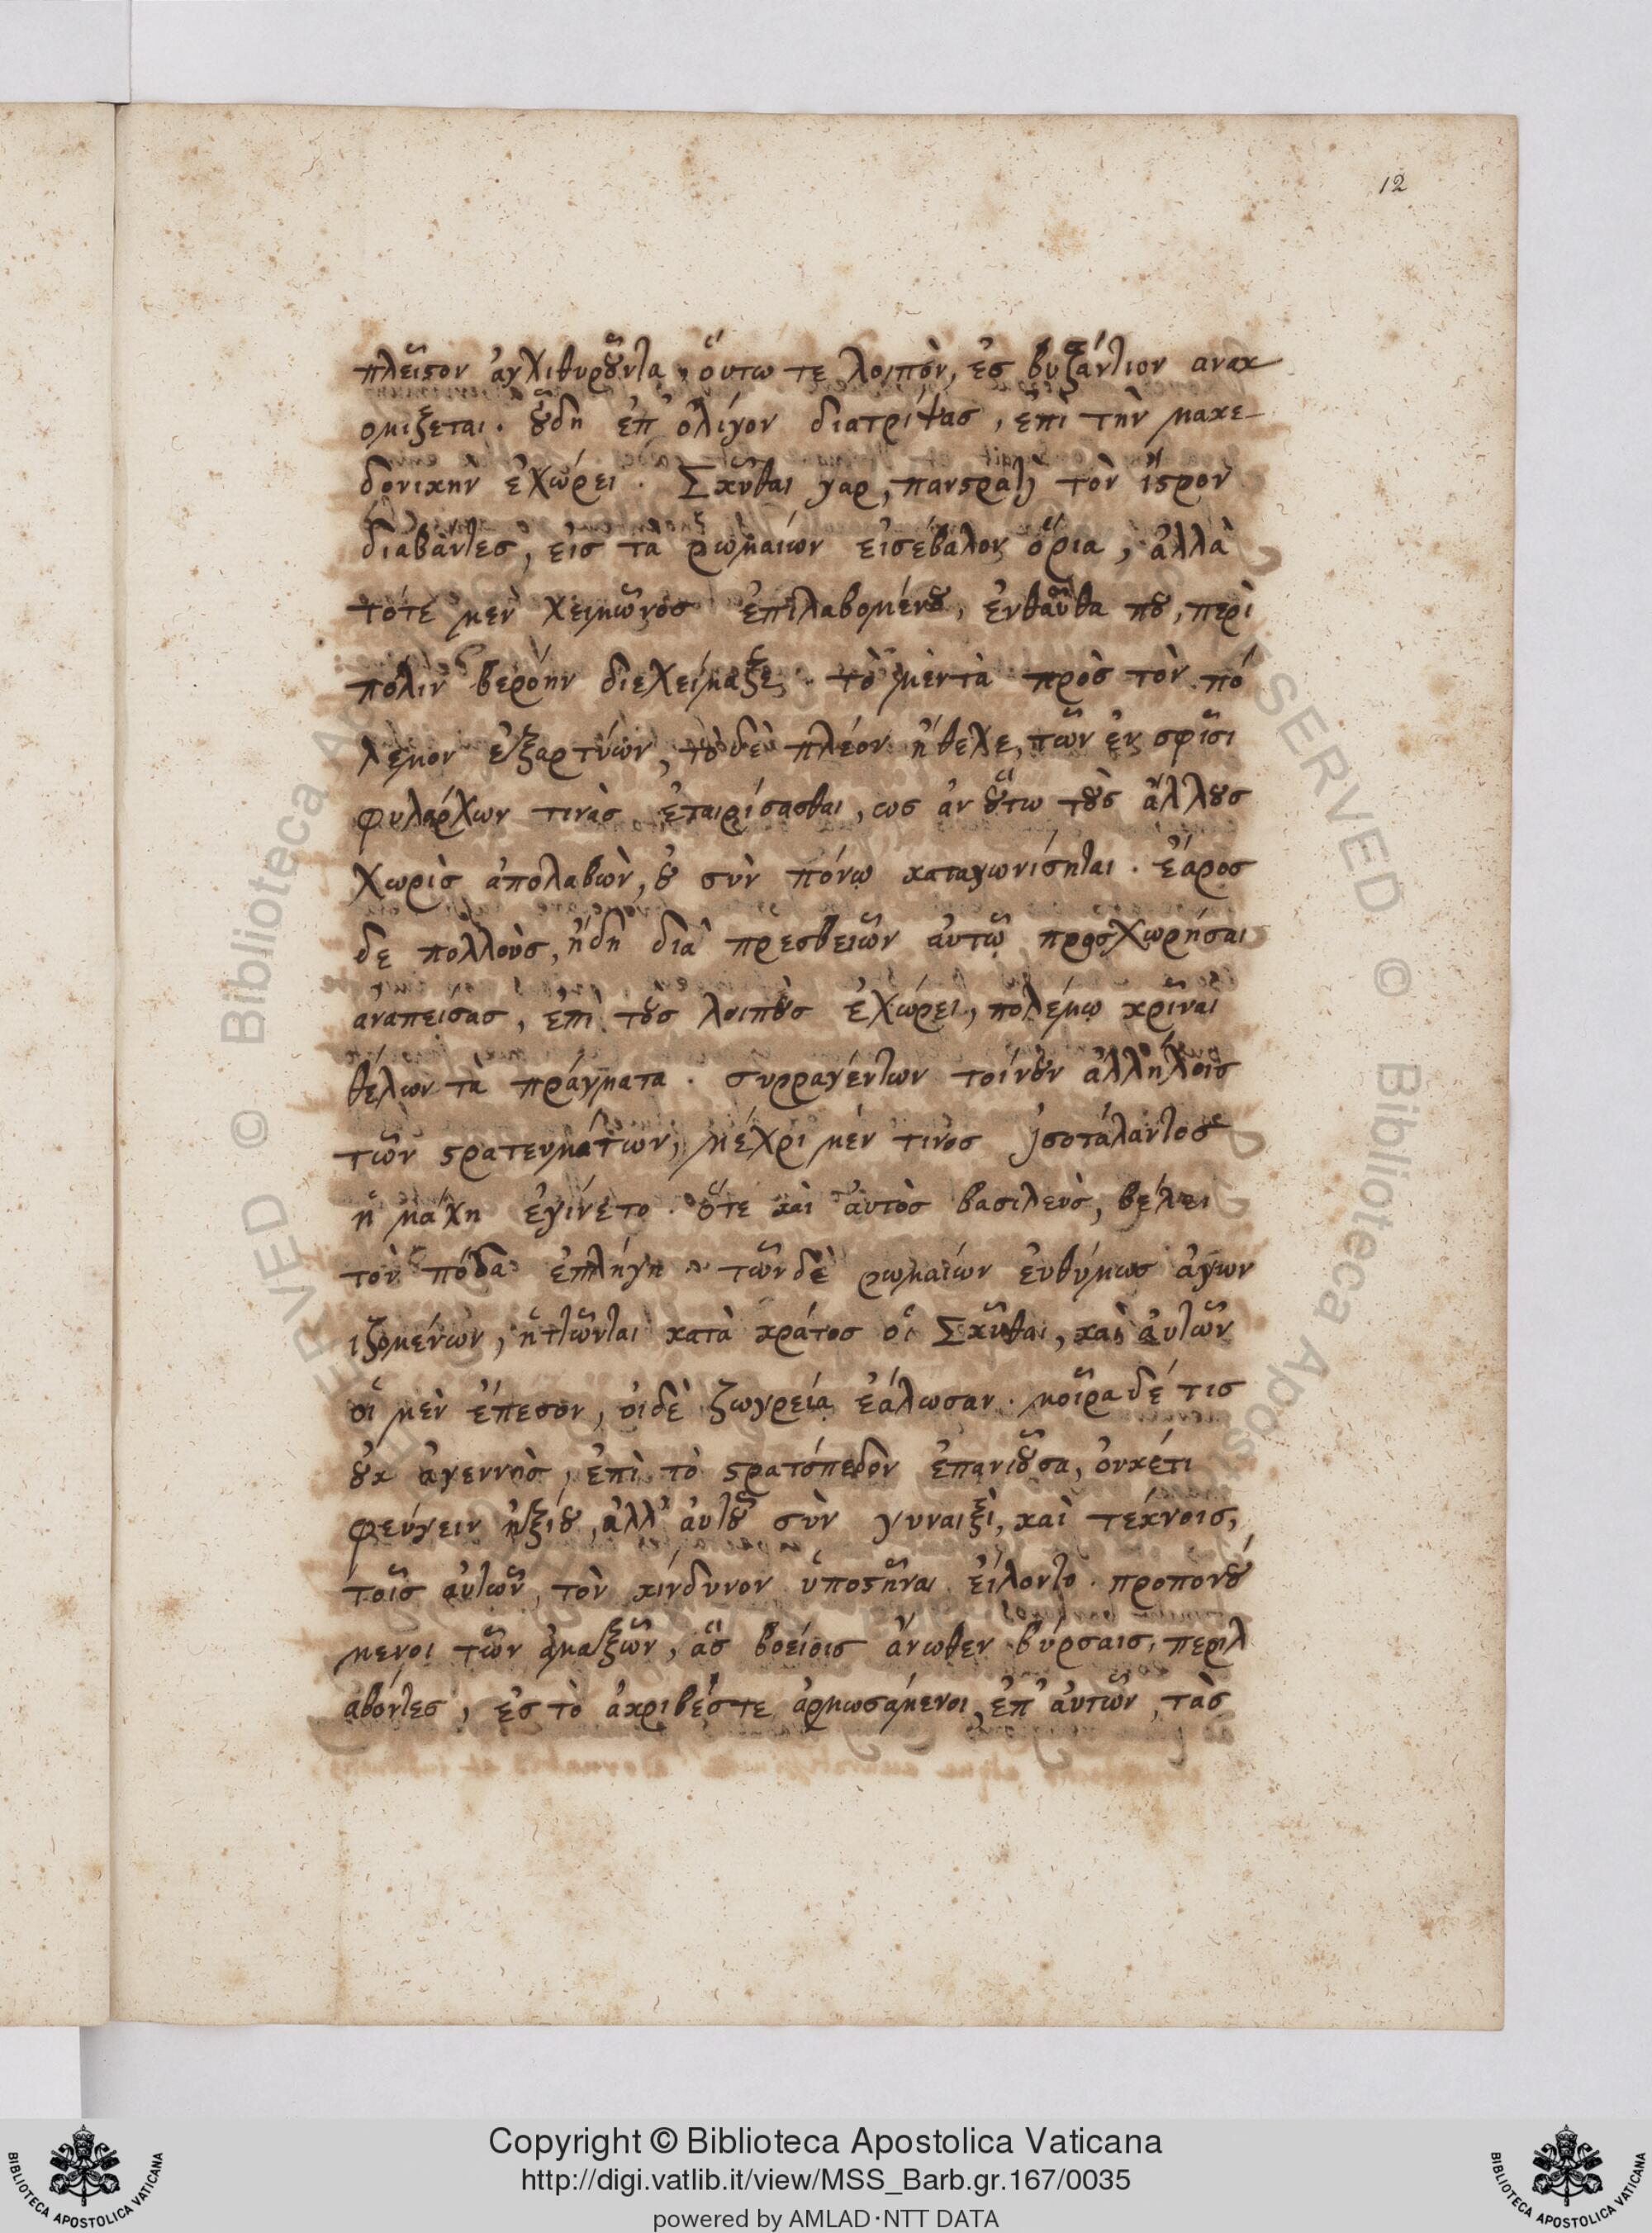 12
πλεῖϛον ἀγχιθυροῦντα, ὅυτω τε λοιπὸν, ἐσ βυζάντιον ανακ
ομιζεται. οὗδη ἐπ' ὀλίγον διατρίψασ, ἐπὶ τὴν μακε-
δονικὴν ἐχώρει. Σκῦθαι γαρ, πανϛρατὶ τὸν ἴϛρον
διαβάντεσ, εἰσ τὰ ρωμαίων εἰσέβαλον ὅρια, ἀλλὰ
τότε μεν χειμῶνοσ ἐπιλαβομένου, ἐνθαῦθα που, περὶ
πόλιν βερόην διεχείμαζε. τὸ μὲν τὰ πρὸσ τὸν πό
λεμον ἐξαρτύων, τὸ δὲ πλέον ἤθελε, τῶν ἐν σφῖσι
φυλάρχων τινὰσ ἑταιρίσασθαι, ωσ ἀν οὕτω τοὺσ ἄλλουσ
χωρὶσ ἀπολαβὼν, οὐ σὺν πόνῳ καταγωνίσηται. ἐάροσ
δε πολλοὺσ, ἤδη διὰ πρεσβειῶν ἀυτῷ προσχωρῆσαι
ἀναπείσασ, ἐπὶ τοὺσ λοιποὺσ ἐχώρει, πολέμῳ κρῖναι
θέλων τὰ πράγματα. συρραγέντων τοίνυν ἀλλήλοισ
τῶν ϛρατευμάτων, μέχρι μέν τινοσ ἰσοτάλαντοσ
ἡ μάχη ἐγίνετο. ὅτε καὶ ἀυτὸσ βασιλεὺσ, βέλει
τὸν πόδα ἐπλήγη. τῶν δὲ ρωμαίων ἐυθύμωσ ἀγων
ιζομένων, ἡττῶνται κατὰ κράτοσ οἱ Σκῦθαι, καὶ ἀυτῶν
οἱ μὲν ἔπεσον, οἱ δὲ ζωγρεία ἑάλωσαν. μοῖρα δέ τισ
οὐκ ἀγεννὴσ, ἐπὶ τὸ ϛρατόπεδον ἐπανιοῦσα, ὀυκέτι
φεύγειν ἠξίου, ἀλλ' ἀυτοῦ σὺν γυναιξὶ, καὶ τέκνοισ,
τοῖσ ἀυτῶν, τὸν κίνδυνον ὑποϛῆναι εἵλοντο. προπονού
μενοι τῶν ἁμαξῶν, ἃσ βοείοισ ἄνωθεν βύρσαισ, περιλ
αβόντεσ, ἐσ τὸ ἀκριβέσ τε ἁρμωσάμενοι, ἐπ' ἀυτῶν, τὰσ
Copyright © Biblioteca Apostolica Vaticana
http://digi.vatlib.it/view/MSS_Barb.gr.167/0035
powered by AMLAD·NTT DATA
BIBLIOTECA APOSTOLICA VATICANA
BIBLIOTECA APOSTOLICA VATICANA